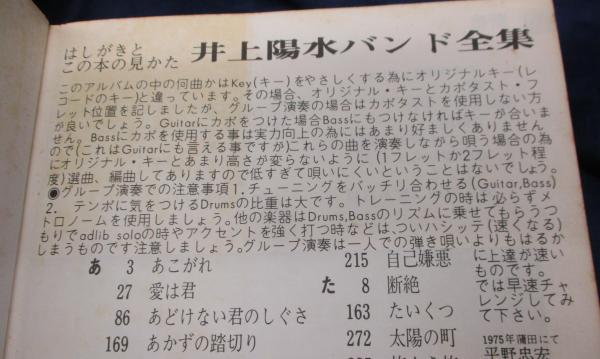 はしがきと
この本の見かた
井上陽水バンド全集
このアルバムの中の何曲かはKey(キー)をやさしくする為にオリジナルキー(レ
コードのキー)と違っています。その場合、オリジナル・キーとカポタスト・フ
レット位置を記しましたが、グループ演奏の場合はカポタストを使用しない方
が良いでしょう。Guitarにカポをつけた場合Bassにもつけなければキーが合いま
せん。Bassにカポを使用する事は実力向上の為にはあまり好ましくありません
ので(これはGuitarにも言える事ですが)これらの曲を演奏しながら唄う場合の為
にオリジナル・キーとあまり高さが変らないように(1フレットか2フレット程
度)選曲、編曲してありますので低すぎて唄いにくいということはないでしょう。
◉グループ演奏での注意事項1.チューニングをバッチリ合わせる(Guitar,Bass)
2. テンポに気をつけるDrumsの比重は大です。トレーニングの時は必らずメ
トロノームを使用しましょう。他の楽器はDrums,Bassのリズムに乗せてもらうつ
もりでadlib soloの時やアクセントを強く打つ時などは、ついハシッテ(速くなる)
しまうものです注意しましょう。グループ演奏は一人での弾き唄いよりもはるか
に上達が速い
ものです。
では早速チャ
レンジしてみ
て下さい。
1975年蒲田にて
平野忠宏
あ 3 あこがれ
27 愛は君
86 あどけない君のしぐさ
169 あかずの踏切り
215 自己嫌悪
た 8 断絶
163 たいくつ
272 太陽の町